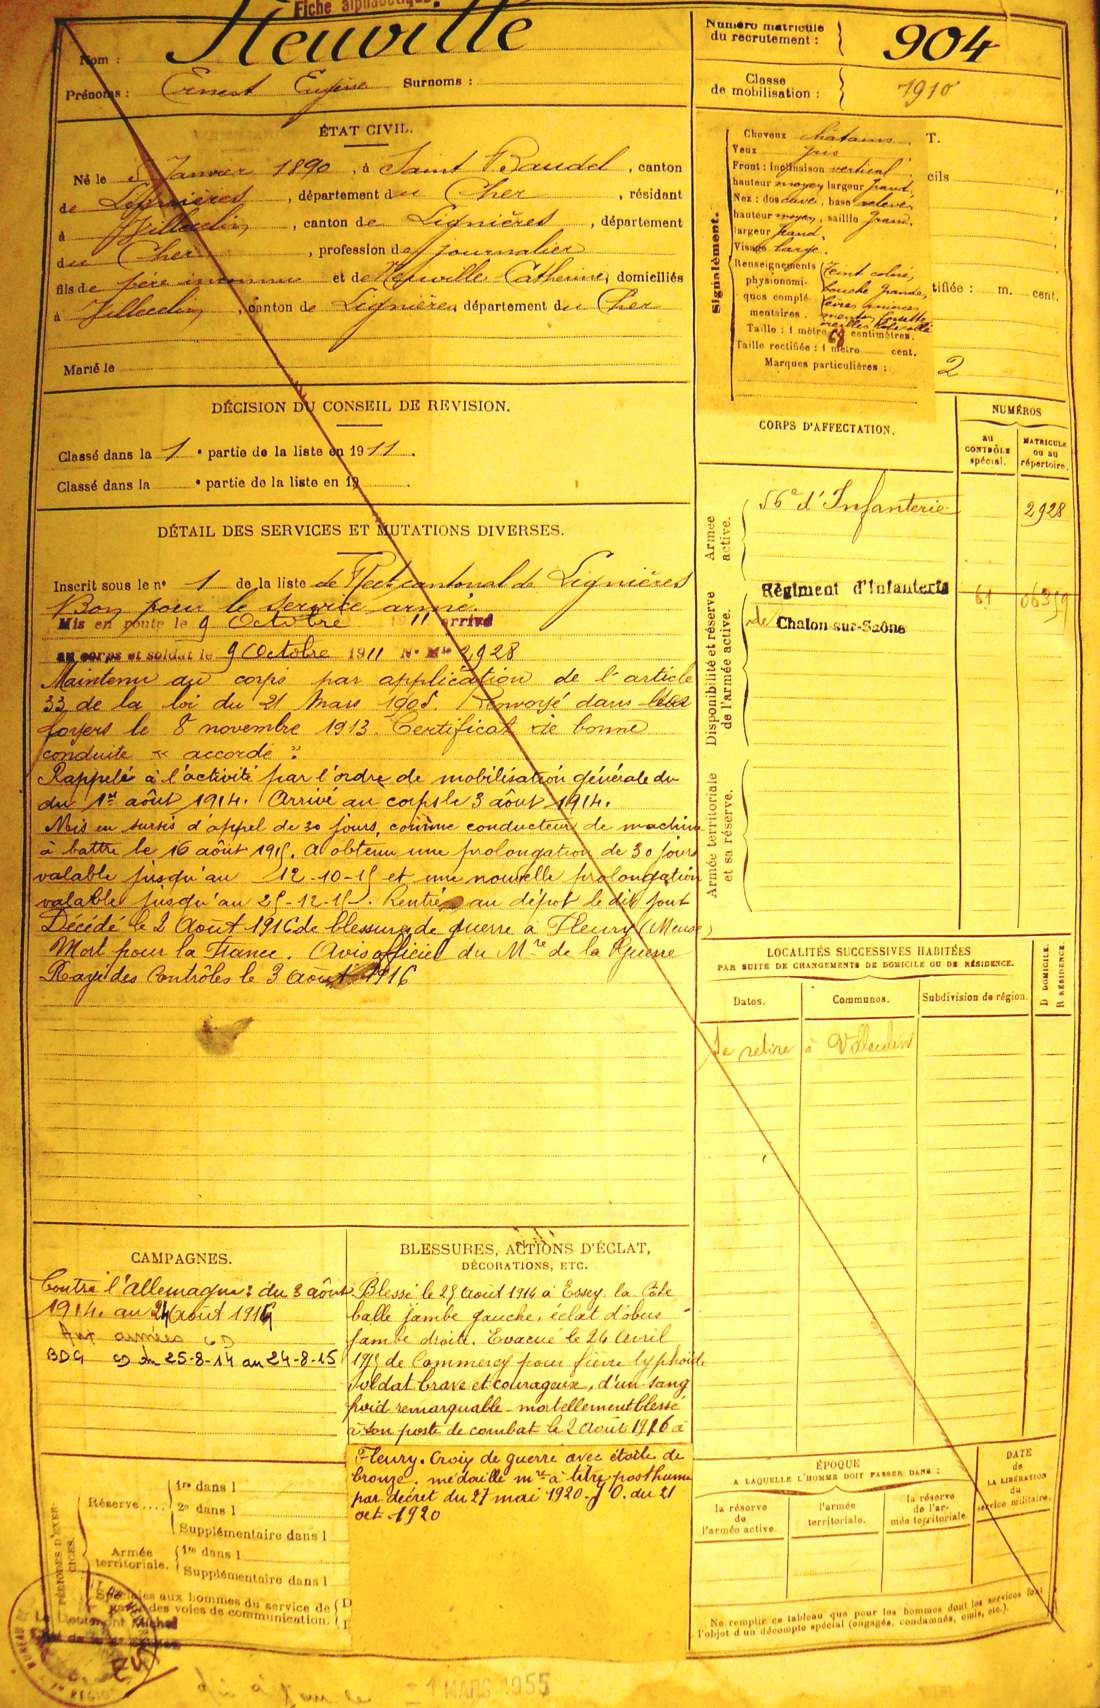 Fiche alphabétique.
Nom : Neuville
Prénoms : Ernest Eugène Surnoms :
Numéro matricule du recrutement : 904
Classe de mobilisation : 1910
ÉTAT CIVIL.
Né le Janvier 1890, à Saint Baudel, canton
de Lignières, département du Cher, résidant
à Villecelin, canton de Lignières, département
du Cher, profession de journalier
fils de père inconnu et de Neuville Catherine, domiciliés
à Villecelin, canton de Lignières, département du Cher
Marié le
Signalement.
Cheveux châtains. T.
Yeux gris
Front : inclinaison vertical,
hauteur moyen largeur grand,
Nez : dos cave, base relevé,
hauteur moyen, saillie grand.
largeur grand.
Visage large.
Renseignements physionomiques complémentaires. Teint coloré,
bouche grande,
Taille : 1 mètre 68 centimètres.
Taille rectifiée : 1 mètre cent.
Marques particulières :
cils
tifiée : m. cent.
2
DÉCISION DU CONSEIL DE REVISION.
Classé dans la 1e partie de la liste en 1911.
Classé dans la e partie de la liste en 19
DÉTAIL DES SERVICES ET MUTATIONS DIVERSES.
Inscrit sous le n° 1 de la liste de Rect cantonal de Lignières
Bon pour le service armé.
Mis en route le 9 Octobre 1911 arrivé
au corps et soldat le 9 Octobre 1911 N° Mle 2928
Maintenu au corps par application de l'article
33 de la loi du 21 Mars 1905. Renvoyé dans ses
foyers le 8 novembre 1913. Certificat de bonne
conduite « accordé »
Rappelé à l'activité par l'ordre de mobilisation générale du
du 1er août 1914. Arrivé au corps le 3 août 1914.
Mis en sursis d'appel de 30 jours, comme conducteur de machine
à battre le 16 août 1915. A obtenu une prolongation de 30 jours
valable jusqu'au 12-10-15 et une nouvelle prolongation
valable jusqu'au 25-12-15. Rentré au dépôt le dit jour
Décédé le 2 Août 1916 de blessures de guerre à Fleury (Meuse)
Mort pour la France. (Avis officiel du Mre de la Guerre
Rayé des Contrôles le 3 août 1916
CORPS D'AFFECTATION.
NUMÉROS
au CONTRÔLE spécial.
MATRICULE ou au répertoire.
Armée active.
56e d'Infanterie 2928
Disponibilité et réserve de l'armée active.
Régiment d'Infanterie 61
de Chalon-sur-Saône
Armée territoriale et sa réserve.
LOCALITÉS SUCCESSIVES HABITÉES
PAR SUITE DE CHANGEMENTS DE DOMICILE OU DE RÉSIDENCE.
Dates. Communes. Subdivision de région. D DOMICILE. R RÉSIDENCE.
Se retire à Villecelin
CAMPAGNES.
Contre l'Allemagne : du 3 août
1914. au 24 Août 1915
Aux armées CD
BDG CD du 25-8-14 au 24-8-15
BLESSURES, ACTIONS D'ÉCLAT,
DÉCORATIONS, ETC.
Blessé le 25 août 1914 à Essey la Côte
balle jambe gauche, éclat d'obus
jambe droite. Evacué le 24 avril
1915 de Commercy pour fièvre typhoïde
Soldat brave et courageux, d'un sang
froid remarquable mortellement blessé
à son poste de combat le 2 Août 1916 à
Fleury. Croix de guerre avec étoile de
bronze. médaille mre à titre posthume
par décret du 27 mai 1920. J O. du 21
oct. 1920
PÉRIODES D'EXERCICES.
Réserve....
1re dans l
2e dans l
Supplémentaire dans l
Armée territoriale.
1re dans l
Supplémentaire dans l
Spéciales aux hommes du service de
garde des voies de communication.
ÉPOQUE
A LAQUELLE L'HOMME DOIT PASSER DANS :
la réserve de l'armée active
l'armée territoriale.
la réserve de l'armée territoriale.
DATE de LA LIBÉRATION du service militaire.
Ne remplir ce tableau que pour les hommes dont les services font
l'objet d'un décompte spécial (engagés, condamnés, omis, etc.).
1 MARS 1955